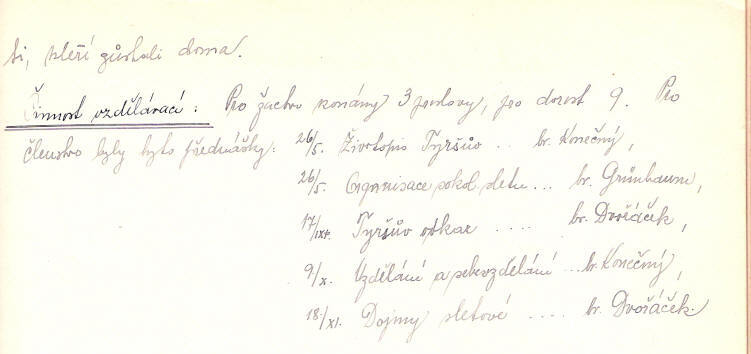 ti, kteří zůstali doma.
Činnost vzdělávací: Pro žactvo konány 3 proslovy, pro dorost 9. Pro
členstvo byly tyto přednášky: 26/5. Životopis Tyršův .. br. Konečný,
26/5. Organisace sokol. sletu ... br. Grünbaum,
17/IX. Tyršův odkaz .... br. Dvořáček,
9/X. Vzdělání a sebevzdělání ... br. Konečný,
18./XI. Dojmy sletové .... br. Dvořáček.